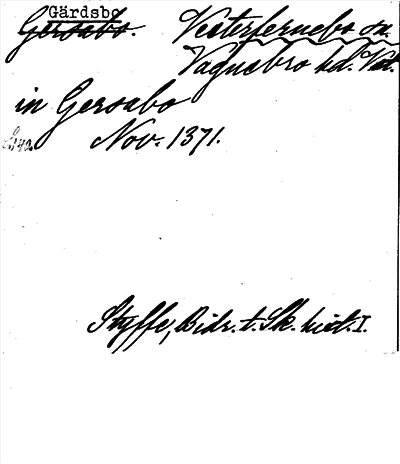 Gärdsbo
Gersabo. Vesterfernebo sn.
Vagnsbro hd. Vstm.
in Gersabo
s. 140. Nov. 1371.
Styffe, Bidr. t. Sk. hist. I.